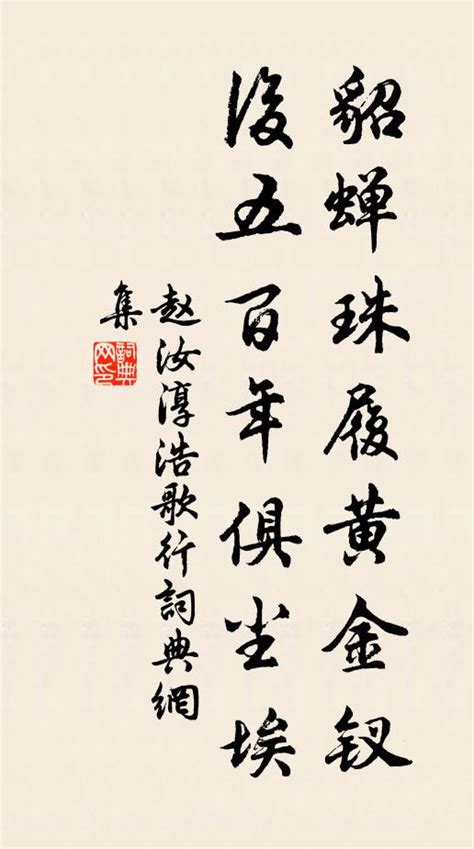 貂蝉珠履黄金钗
後五百年俱尘埃
赵汝淳浩歌行詞典網
集
詞典
网印